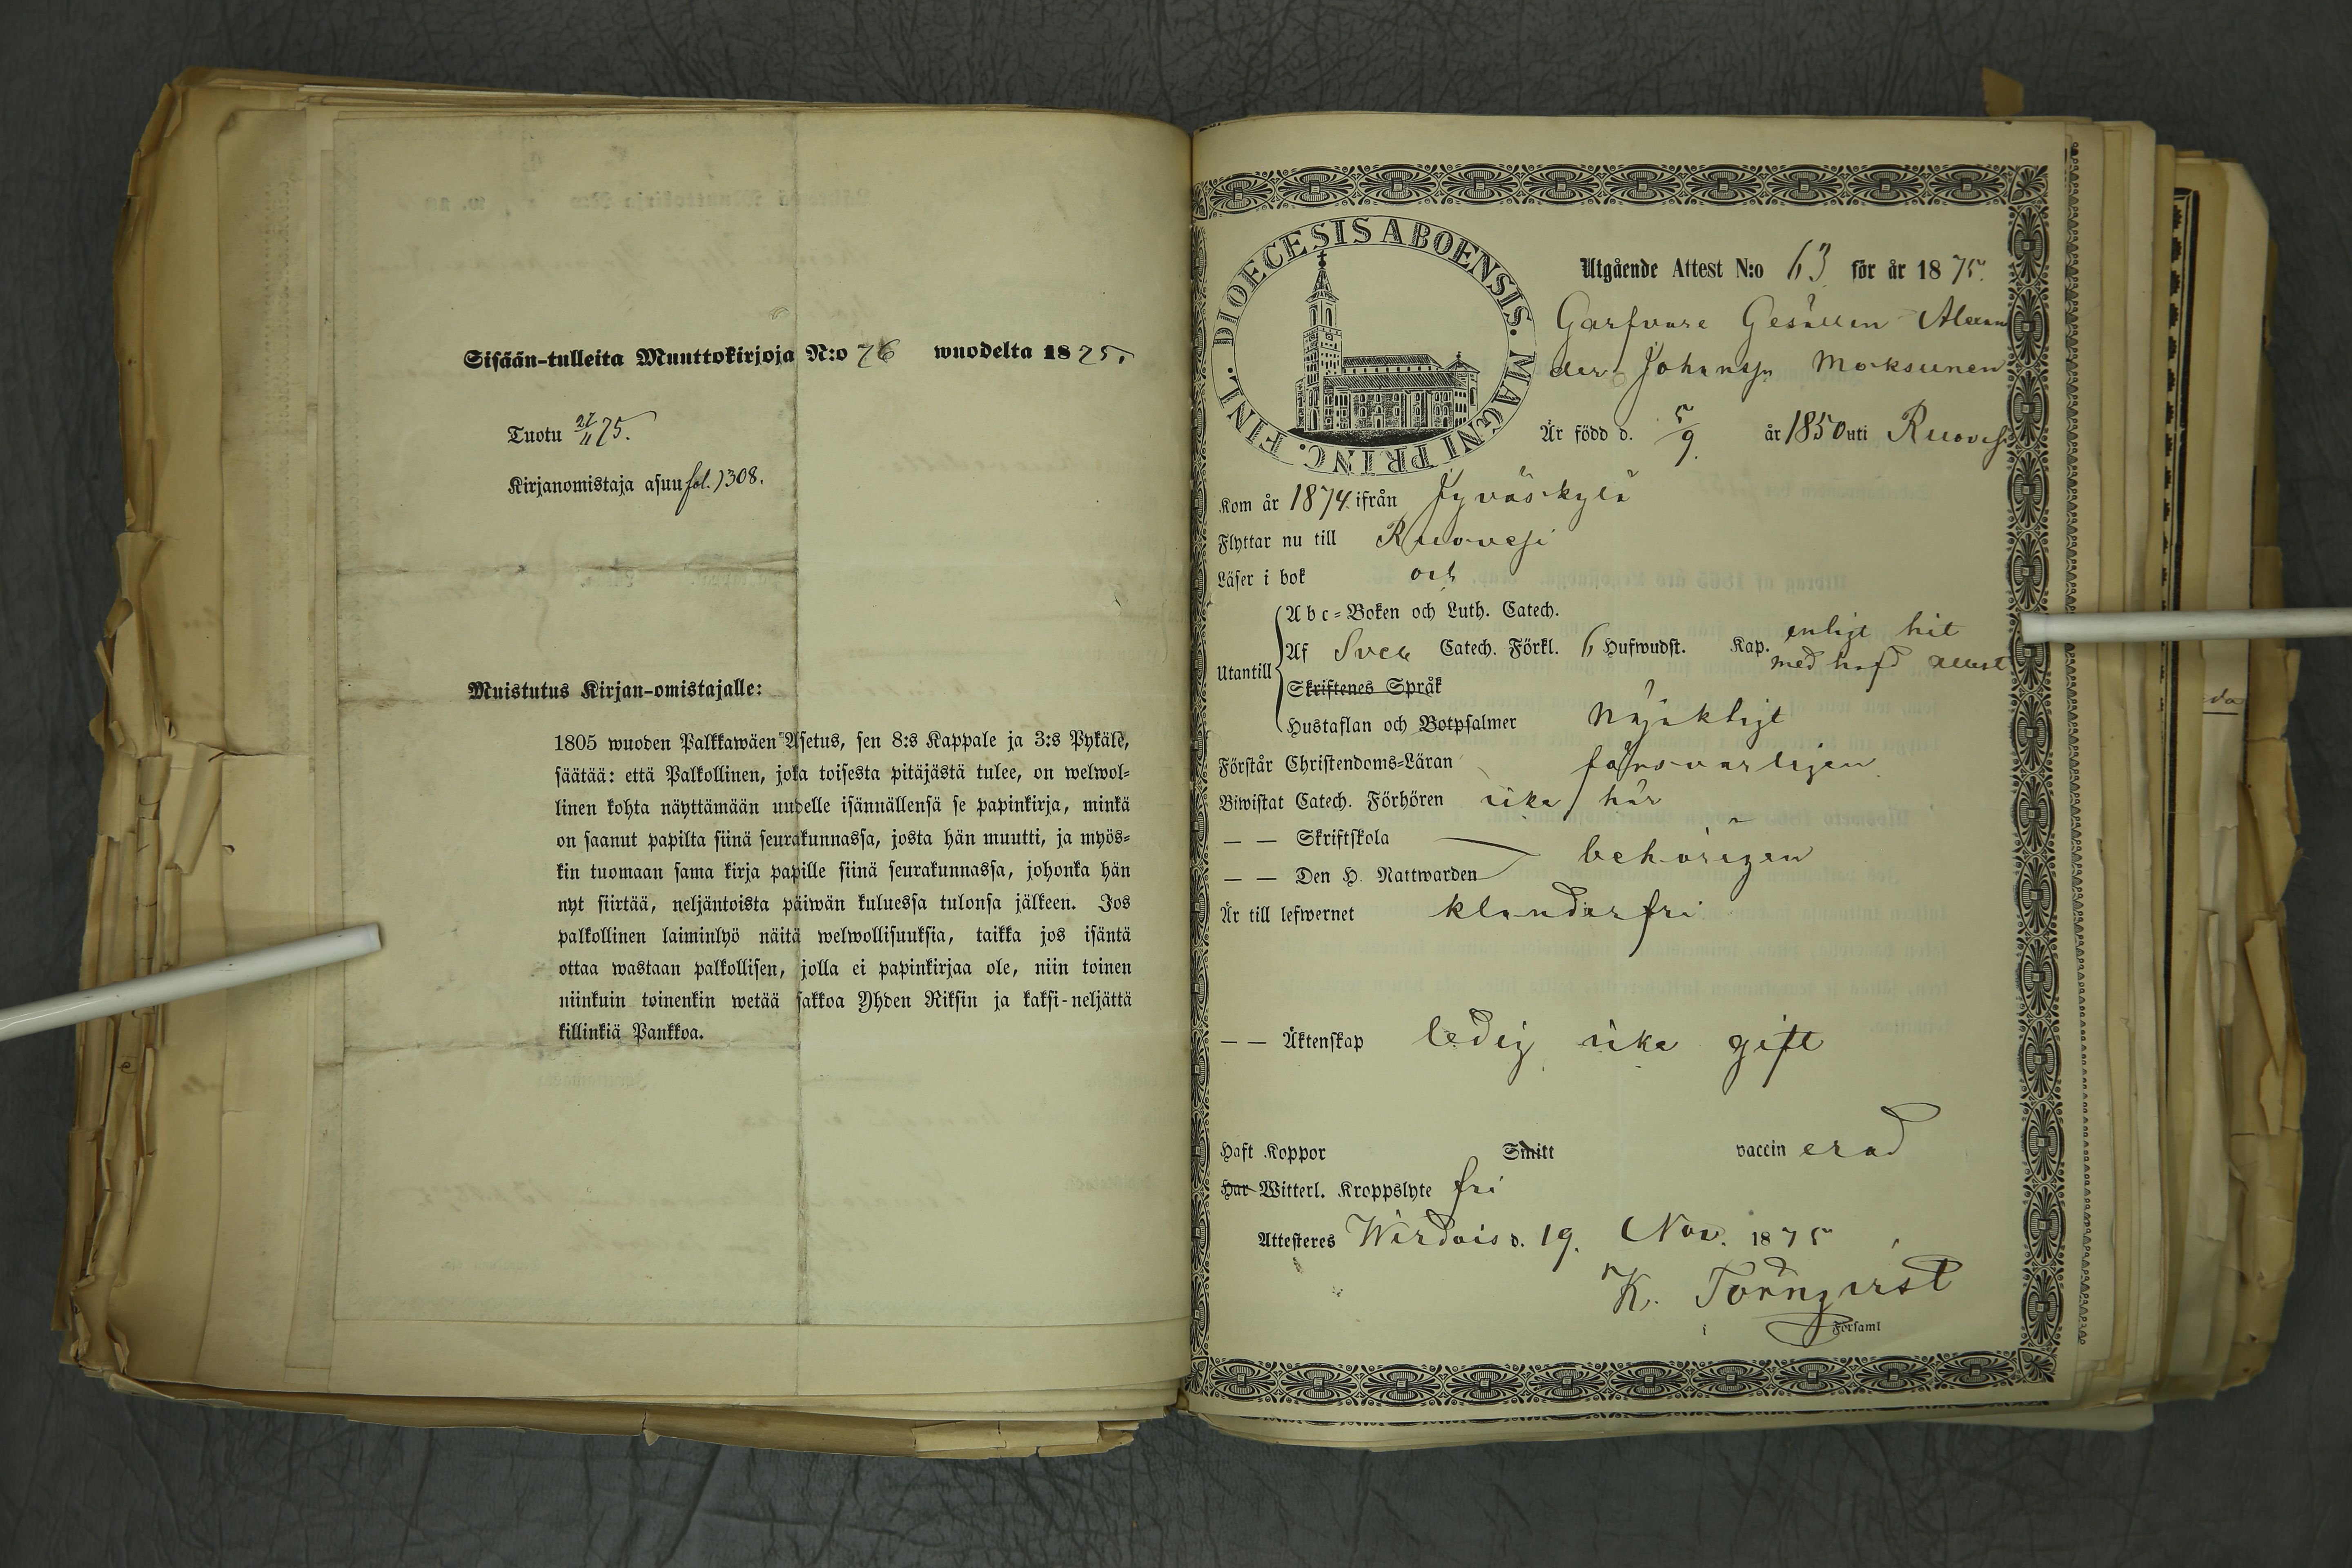 Sisään-tulleita Muuttokirjoja N:o 76 wuodelta 1875.
Tuotu 27/11 75.
Kirjanomistaja asuu fol. 308.
Muistutus Kirjan-omistajalle:
1805 wuoden Palkkawäen Asetus, sen 8:s Kappale ja 3:s Pykäle,
säätää: että Palkollinen, joka toisesta pitäjästä tulee, on welwol-
linen kohta näyttämään uudelle isännällensä se papinkirja, minkä
on saanut papilta siinä seurakunnassa, josta hän muutti, ja myös-
kin tuomaan sama kirja papille siinä seurakunnassa, johonka hän
nyt siirtää, neljäntoista päiwän kuluessa tulonsa jälkeen. Jos
palkollinen laiminlyö näitä welwollisuuksia, taikka jos isäntä
ottaa wastaan palkollisen, jolla ei papinkirjaa ole, niin toinen
niinkuin toinenkin wetää sakkoa Yhden Riksin ja kaksi-neljättä
killinkiä Pankkoa.
DIOECESIS ABOENSIS. MAGNI PRINC. FINL.
Utgående Attest N:o 63 för år 1875.
Garfvare Gesällen Alexan
der Johansn Moksunen
Är född d. 5/9. år 1850 uti Ruoves
Kom år 1874. ifrån Jyväskylä
Flyttar nu till Ruovesi
Läser i bok och
Utantill
Abc-Boken och Luth. Catech.
Af Sveb Catech. Förkl. 6 Hufwudst. Kap. enligt hit
med hafd attest
Skriftenes Språk
Hustaflan och Botpsalmer Nöjaktigt
Förstår Christendoms-Läran försvarligen
Biwistat Catech. Förhören icke här
— — Skriftskola
— — Den H. Nattwarden behörigen
Är till lefwernet klanderfri
— — Äktenskap ledig icke gift
Haft Koppor Smitt vaccin erad
Har Witterl. Kroppslyte fri
Attesteres Wirdois d. 19. Nov. 1875
K. Törnqvist
i Församl